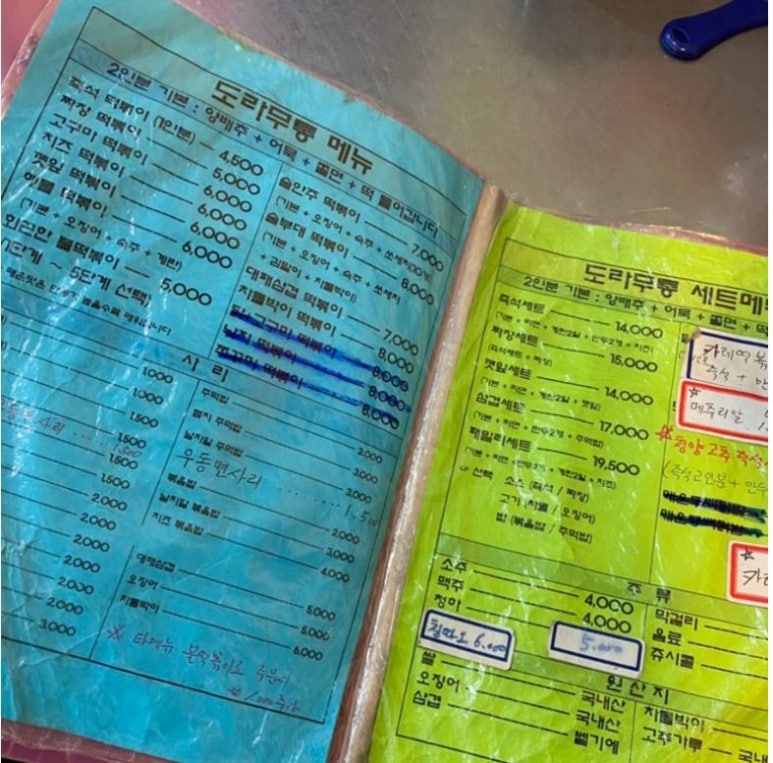 도라무통 메뉴
2인분 기본 : 양배추 + 어묵 + 쫄면 + 떡 들어갑니다
즉석 떡볶이 (1인분) — 4,500
짜장 떡볶이 — 5,000
고구미 떡볶이 — 6,000
치즈 떡볶이 — 6,000
깻잎 떡볶이 — 6,000
해물 떡볶이 — 6,000
(기본 + 오징어 + 숙주 + 계란)
화끈한 불떡볶이 — 5,000
1단계 ~ 5단계 선택)
술안주 떡볶이 — 7,000
(기본 + 오징어 + 숙주 + 쏘세지10개)
술부대 떡볶이 — 8,000
(기본 + 오징어 + 숙주 + 쏘세지
+ 김말이 + 치돌박이)
대패삼겹 떡볶이 — 7,000
치돌박이 떡볶이 — 8,000
8,000
8,000
8,000
사 리
1,000
1,000
1,500
1,500
1,500
1,500
2,000
2,000
2,000
2,000
2,000
3,000
주먹밥 2,000
멸치 주먹밥 3,000
날치알 주먹밥 3,000
우동면사리 1,500
볶음밥 2,000
날치알 볶음밥 3,000
치즈 볶음밥 4,000
대패삼겹 5,000
오징어 5,000
치돌박이 6,000
※ 타메뉴 불떡볶이로 주문시
1,000추가
도라무통 세트메
2인분 기본 : 양배추 + 어묵 + 쫄면 + 떡
즉석세트 — 14,000
(기본 + 라면 + 계란2알 + 만두2개 + 치즈)
짜장세트 — 15,000
(즉석세트 + 짜장)
깻잎세트 — 14,000
(기본 + 라면 + 계란2알 + 깻잎)
삼겹세트 — 17,000
(기본 + 라면 + 만두2개 + 주먹밥)
패밀리세트 — 19,500
(기본 + 라면 + 만두2개 + 계란2알 + 치즈)
☞ 선택 소스 (즉석 / 짜장)
고기 (치돌 / 오징어)
밥 (볶음밥 / 주먹밥)
카레떡볶
즉석 + 만
메추리알
※ 청양고추 즉석
(즉석2인분 + 만두
주 류
소주 — 4,000
맥주 — 4,000
청하 5,000
칭따오 6,000
막걸리
음료
쥬시쿨
원산지
쌀 — 국내산
오징어 — 국내산
삼겹 — 벨기에
치돌박이
고추가루 — 국내